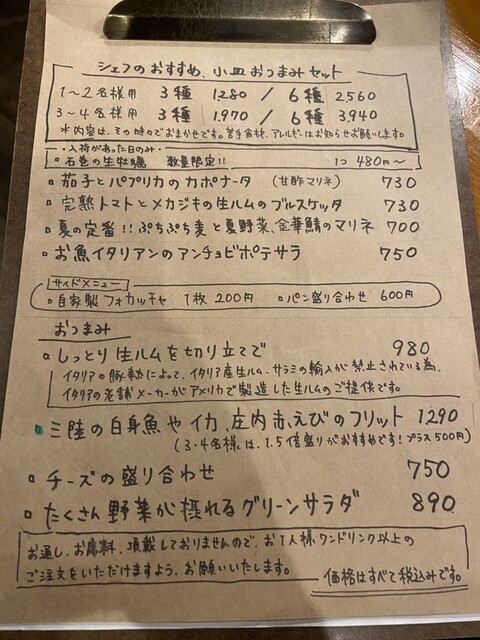 シェフのおすすめ、小皿おつまみセット
1〜2名様用 3種 1,280 / 6種 2,560
3〜4名様用 3種 1,970 / 6種 3,940
*内容は、その時々でおまかせです。苦手食材、アレルギーはお知らせお願いします。
・入荷があった日のみ・
石巻の生牡蠣 数量限定!! 1つ 480円〜
茄子とパプリカのカポナータ (甘酢マリネ) 730
完熟トマトとメカジキの生ハムのブルスケッタ 730
夏の定番!!ぷちぷち麦と夏野菜、金華鯖のマリネ 700
お魚イタリアンのアンチョビポテサラ 750
サイドメニュー
自家製フォカッチャ 1枚 200円 パン盛り合わせ 600円
おつまみ
しっとり生ハムを切り立てで 980
イタリアの豚熱によって、イタリア産生ハム、サラミの輸入が禁止されている為、
イタリアの老舗メーカーがアメリカで製造した生ハムのご提供です。
三陸の白身魚やイカ、庄内赤えびのフリット 1290
(3・4名様は、1.5倍盛りがおすすめです!プラス500円)
チーズの盛り合わせ 750
たくさん野菜が摂れるグリーンサラダ 890
お通し、お席料、頂載しておりませんので、お1人様ワンドリンク以上の
ご注文をいただけますよう、お願いいたします。
価格はすべて税込みです。